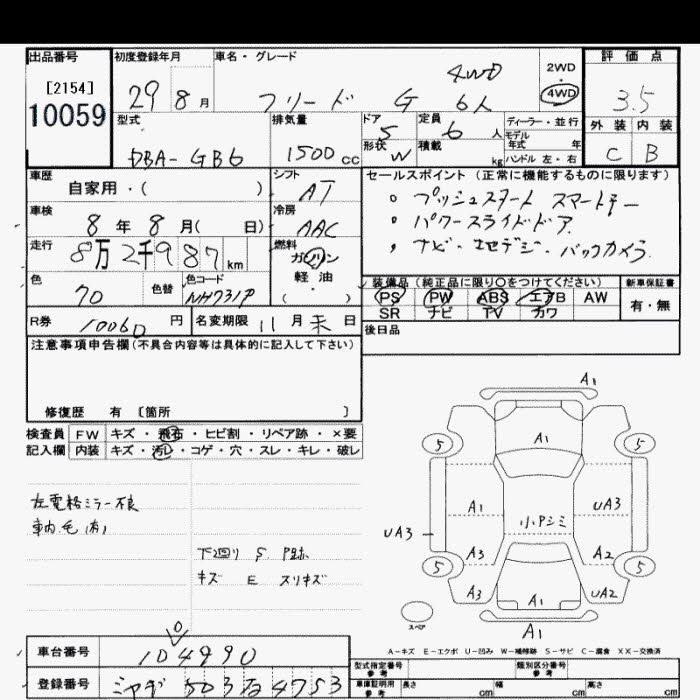 出品番号
[2154]
10059
初度登録年月
29 8月
車名・グレード
4WD
フリード G 6人
2WD
・
4WD
評価点
3.5
外装 内装
C B
型式
DBA-GB6
排気量
1500cc
ドア
5
定員
6人
形状
W
積載
kg
ディーラー・並行
モデル
年式 年
ハンドル 左・右
車歴
自家用・( )
シフト
AT
セールスポイント (正常に機能するものに限ります)
。プッシュスタート スマートキー
・パワースライドドア
・ナビ・地デジ・バックカメラ
車検
8年8月( 日)
冷房
AAC
走行
8万2千987km
燃料
ガソリン
軽油
( )
色
70
色替
色コード
NH731P
装備品 (純正品に限り〇をつけてください)
PS PW ABS エアB AW
SR ナビ TV カワ
新車保証書
有・無
R券
10060円
名変期限 11月末日
後日品
注意事項申告欄(不具合内容等は具体的に記入して下さい)
修復歴 有 [箇所 ]
検査員
記入欄
FW キズ・飛石・ヒビ割・リペア跡・×要
内装 キズ・汚レ・コゲ・穴・スレ・キレ・破レ
左電格ミラー不良
車内毛(有)
下回り S P跡
キズ E スリキズ
A1
A1
5 5
A1 UA3
小Pシミ
UA3
A3 A2
5 5
A3 UA2
A1
スペア
A1
A-キズ E-エクボ U-凹み W-補修跡 S-サビ C-腐食 XX-交換済
0
車台番号
104990
登録番号
ミヤギ 503 4753
型式指定番号
参考
類別区分番号
参考
車庫証明用
参考
長さ cm
幅 cm
高さ cm